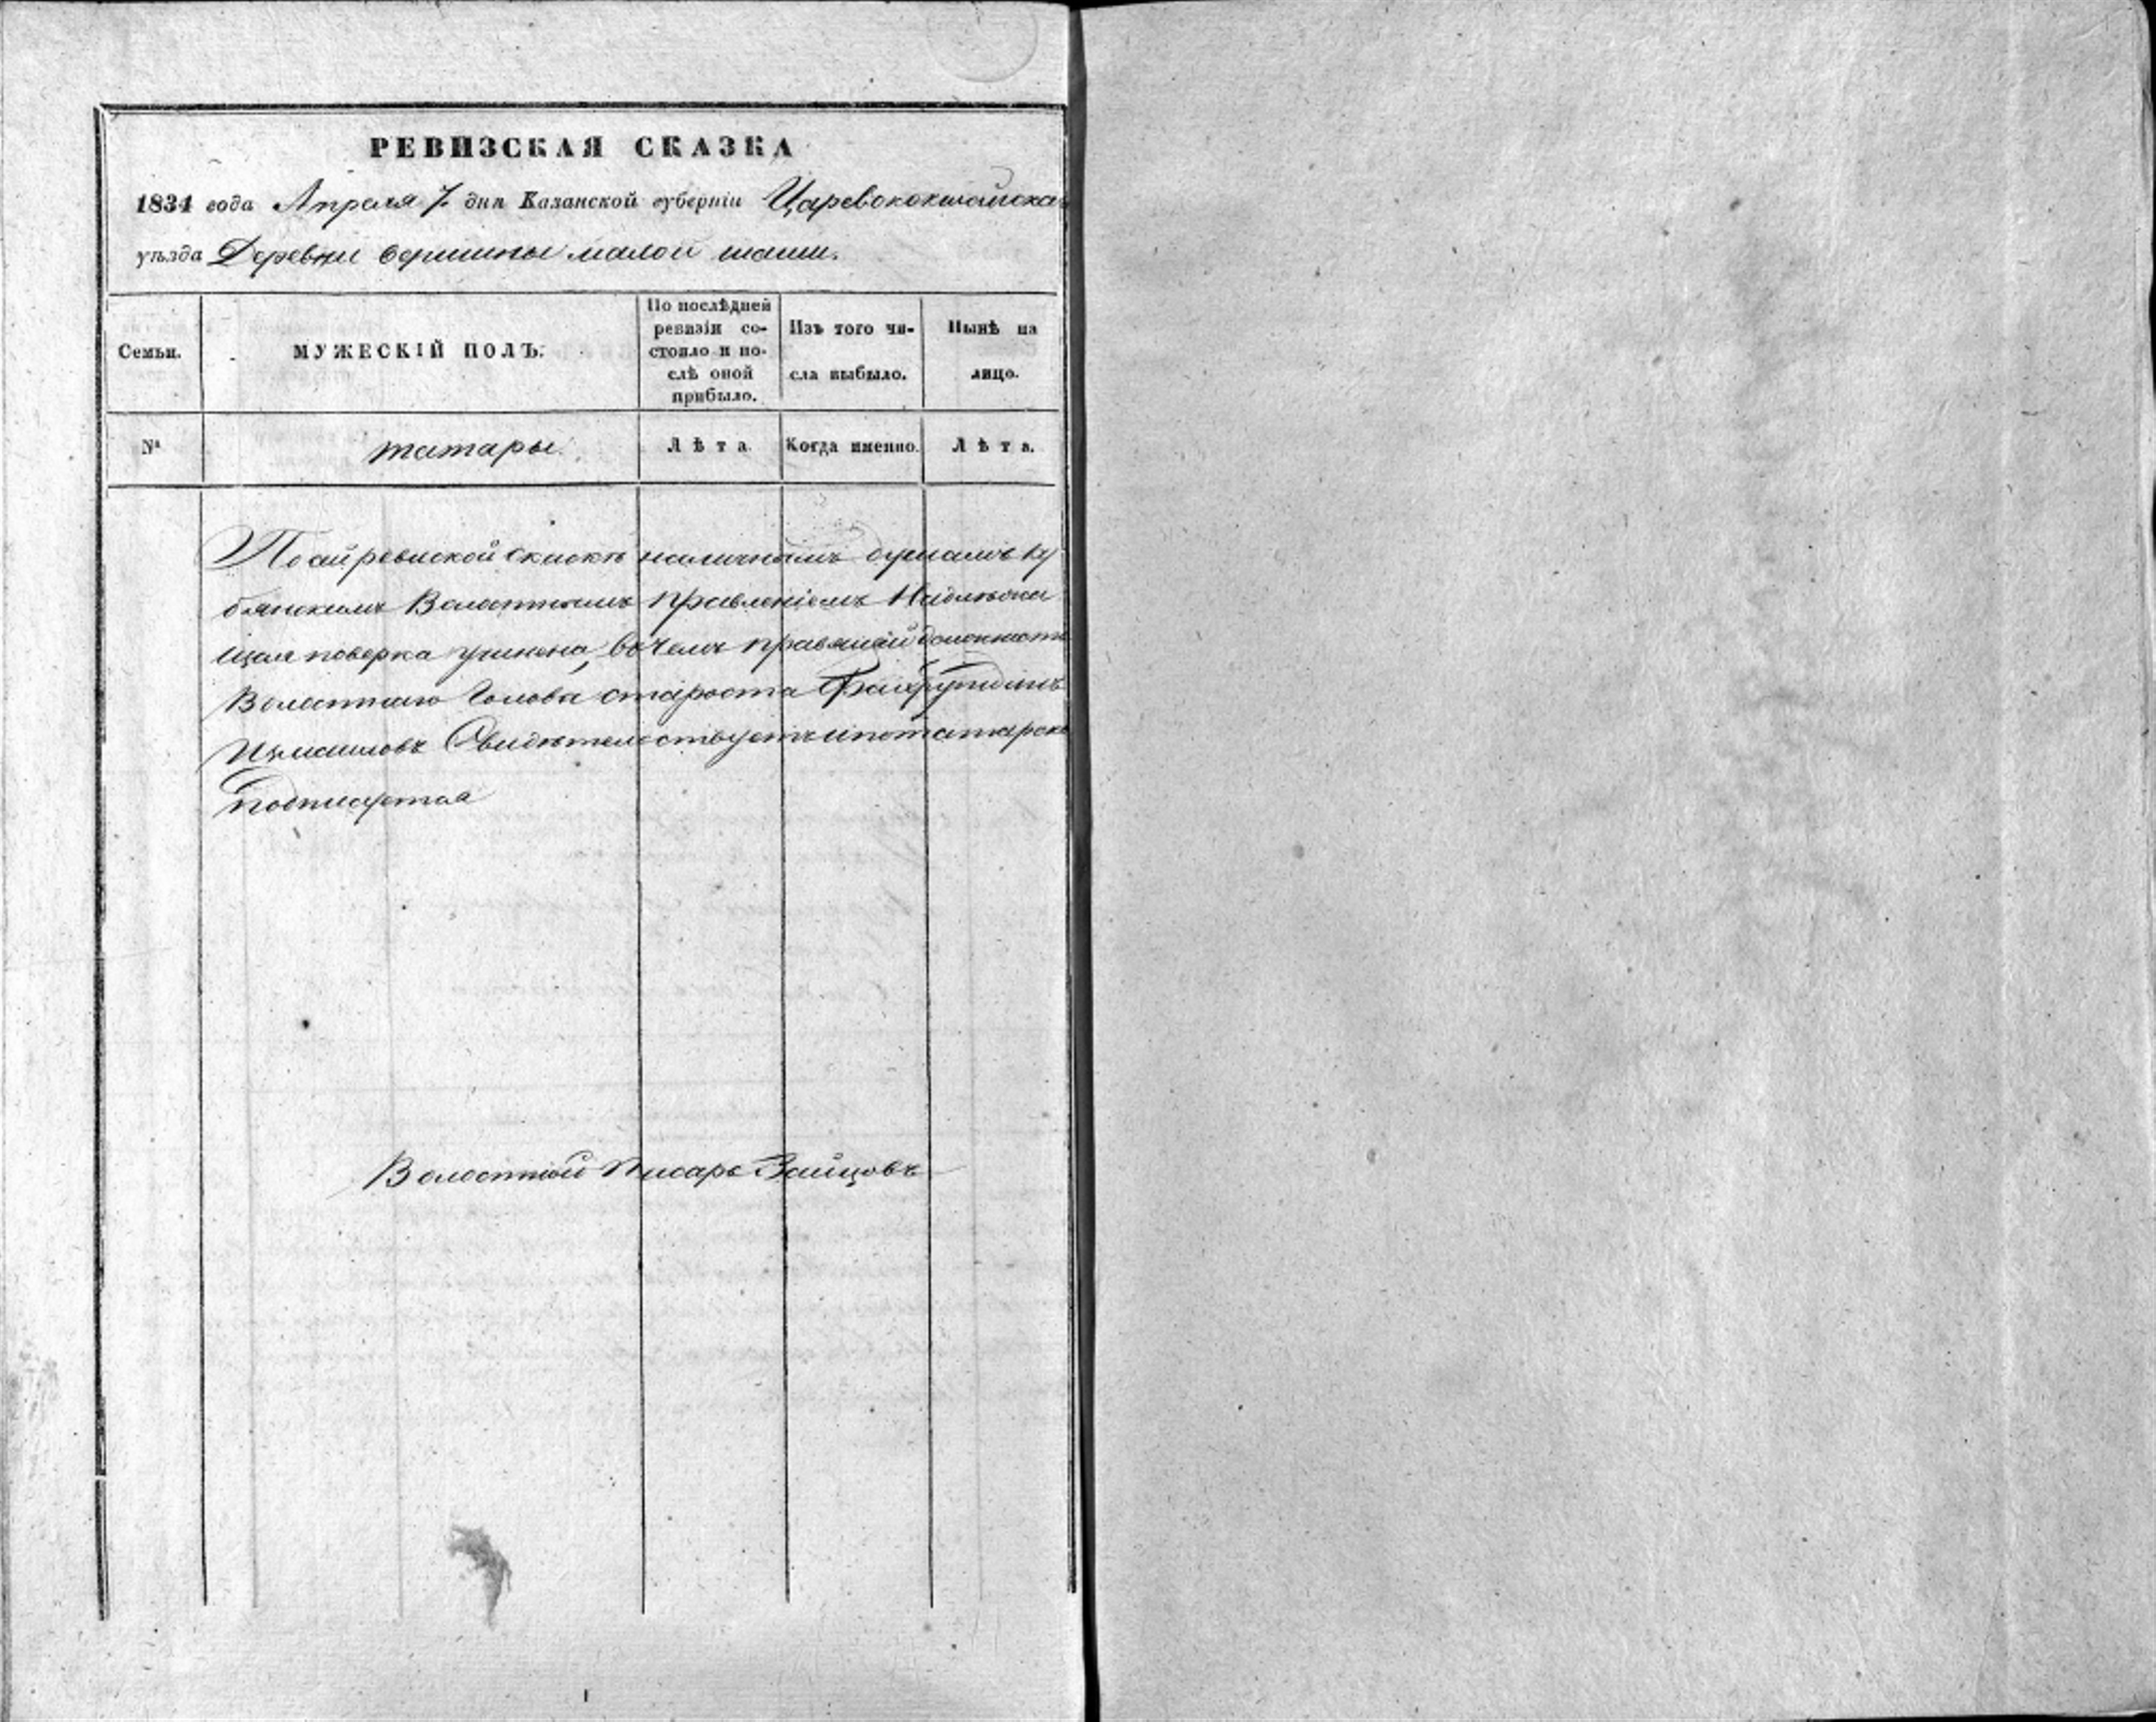 РЕВИЗСКАЯ СКАЗКА
1834 года Апреля 7 дня Казанской губерніи Царевококшайска
уѣзда Деревни вершины малой шаши.
Семьи.
МУЖЕСКІЙ ПОЛЪ.
По послѣдней
ревизіи со-
стояло и по-
слѣ оной
прибыло.
Изъ того чи-
сла выбыло.
Нынѣ на
лицо.
№
татары
Лѣта.
Когда именно.
Лѣта.
По сей ревиской скаскѣ наличнымъ душамъ Ку
бянскимъ Волостнымъ правленіемъ Надлежа
щая поверка учинена, вочемъ правящій должность
Волостнаго Головы староста Фахрутдинъ
Измаиловъ Свидѣтелствуетъ ипотатарски
подписуетца
Волостной Писарь Зайцовъ